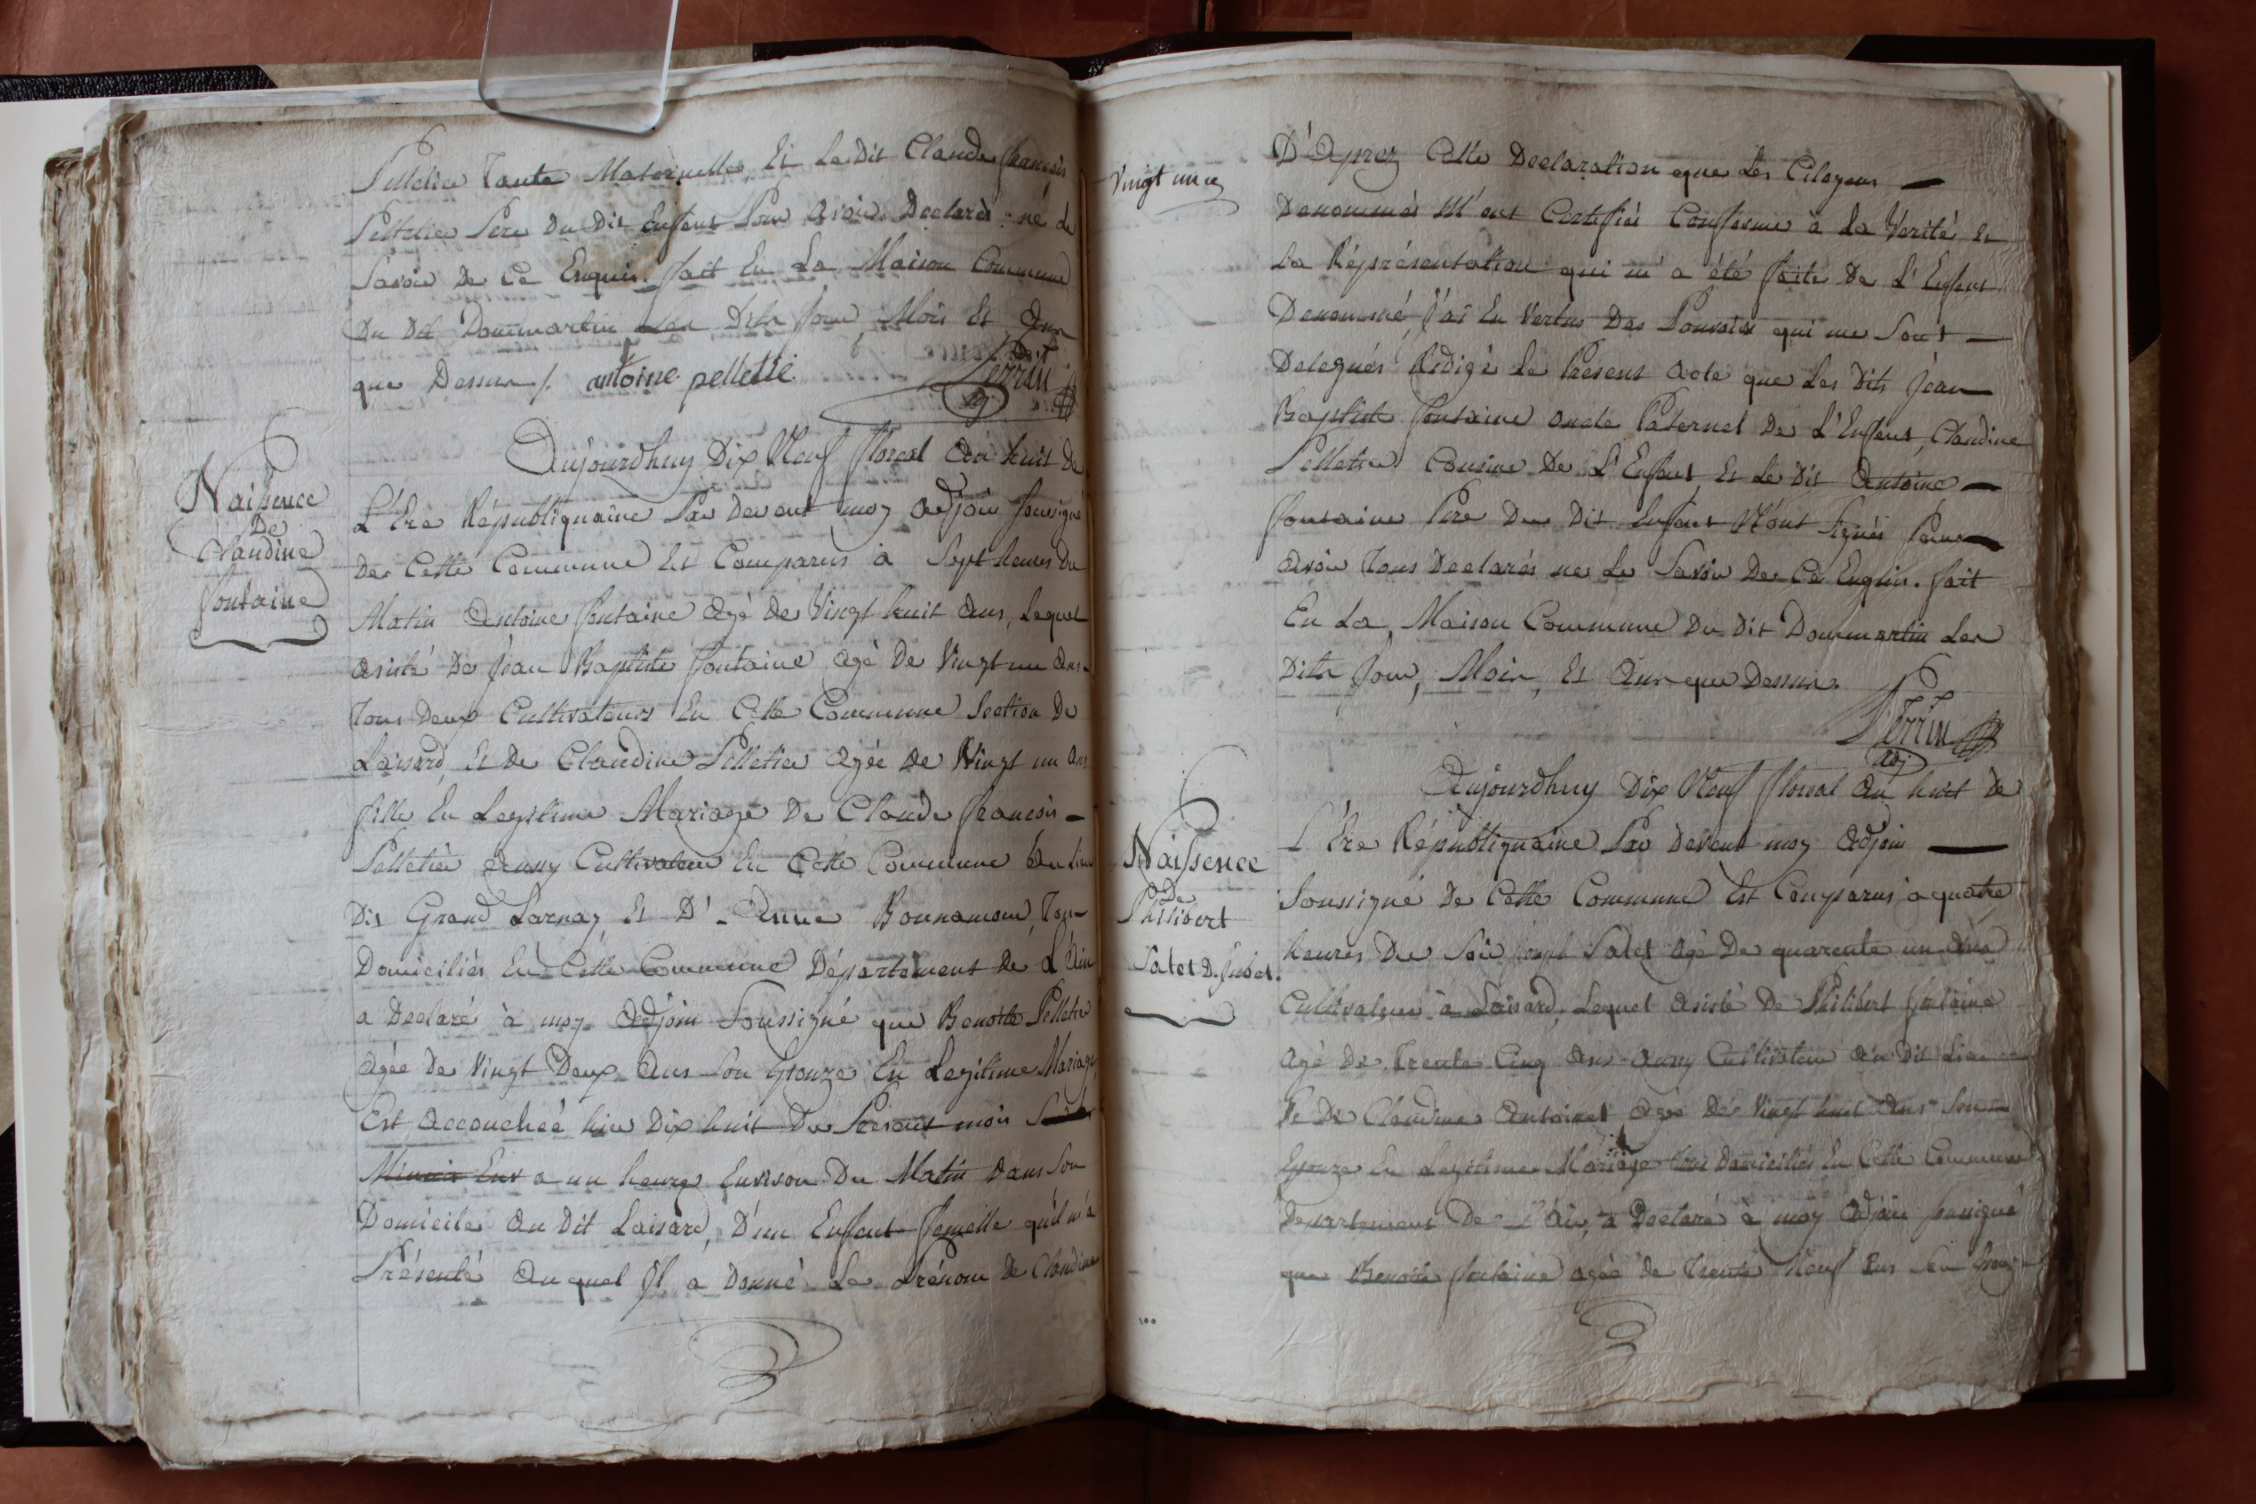 Pelletier Tante Maternelle, Et Le Dit Claude françois
Pelletier Pere Du Dit Enfant Pour Avoir Declarés ne Le
Savoir De Ce Enquis. fait En La Maison Commune
Du Dit Dommartin Les Dits Jour, Mois Et Ans
que Dessus /. antoine pelletié Perrin
adj
Naissence
De
Claudine
fontaine
Aujourdhuy Dix Neuf floreal An huit De
L'Ere Républiquaine Par Devant moy Adjoin soussigné
De Cette Commune Est Comparus à Sept heures Du
Matin Antoine fontaine Agé de Vingt huit Ans, Lequel
Asisté De Jean Baptiste fontaine Agé De Vingt un Ans
Tous Deux Cultivateurs En Cette Commune Section De
Laisard, Et De Claudine Pelletier Agée De Vingt un Ans
fille En Legitime Mariage De Claude francois
Pelletier Aussy Cultivateur En Cette Commune Au Lieu
Dit Grand Larnay, Et D'Anne Bonnamour, Tous
Domiciliés En Cette Commune Département De L'Ain
a Declaré à moy Adjoin Soussigné que Benoitte Pelletier
Agée De Vingt Deux Ans Son Epouze En Legitime Mariage,
Est Accoucheé hier Dix huit Du Present mois
a un heure Environ Du Matin Dans Son
Domicile Au Dit Laisard, D'un Enfant femelle qu'il m'a
Présenté Au quel Il a Donné Le Prénom De Claudine
Vingt un
D'Aprez Cette Declaration que Les Citoyens
Denommés M'ont Certifiés Conforme à la Verité Et
La Réprésentation qui m'a été faite De L'Enfant
Denommé, J'ai En Vertus Des Pouvoirs qui me Sont
Delegués Rédigé Le Present Acte que Les Dits Jean
Baptiste fontaine Oncle Paternel De L'Enfant, Claudine
Pelletier Cousine De L'Enfant, Et Le Dit Antoine
fontaine Pere Du Dit Enfant N'ont Signés Pour
Avoir Tous Declarés ne Le Savoir De Ce Enquis. fait
En La Maison Commune Du Dit Dommartin Les
Dits Jour, Mois, Et Ans que Dessus.
Perrin
adj
Naissence
De
Philibert
Salet D. Jubet.
Aujourdhuy Dix Neuf floreal An huit De
L'Ere Républiquaine Par Devant moy Adjoin
Soussigné De Cette Commune Est Comparus a quatre
heures Du Soir Joseph Salet Agé De quarente un Ans
Cultivateur à Laisard, Lequel Asisté De Philibert fontaine
Agé De Trente Cinq Ans Aussy Cultivateur Au Dit Lieu
Et De Claudine Antoinet Agée De Vingt huit Ans Son
Epouze En Legitime Mariage Tous Domiciliés En Cette Commune
Departement De L'Ain, a Declaré à moy Adjoin soussigné
que Benoitte fontaine Agée De Trente Neuf Ans Son Epouze